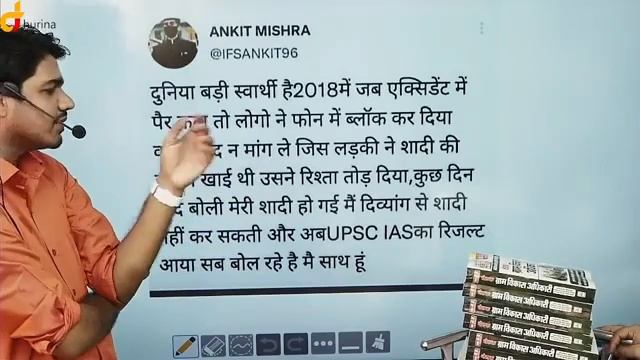 hurina
ANKIT MISHRA
@IFSANKIT96
दुनिया बड़ी स्वार्थी है2018में जब एक्सिडेंट में
पैर तो लोगो ने फोन में ब्लॉक कर दिया
न मांग ले जिस लड़की ने शादी की
खाई थी उसने रिश्ता तोड़ दिया,कुछ दिन
बोली मेरी शादी हो गई मैं दिव्यांग से शादी
नहीं कर सकती और अबUPSC IASका रिजल्ट
आया सब बोल रहे है मै साथ हूं
ग्राम विकास अधिकारी
ग्राम विकास अधिकारी
ग्राम विकास अधिकारी
ग्राम विकास अधिकारी